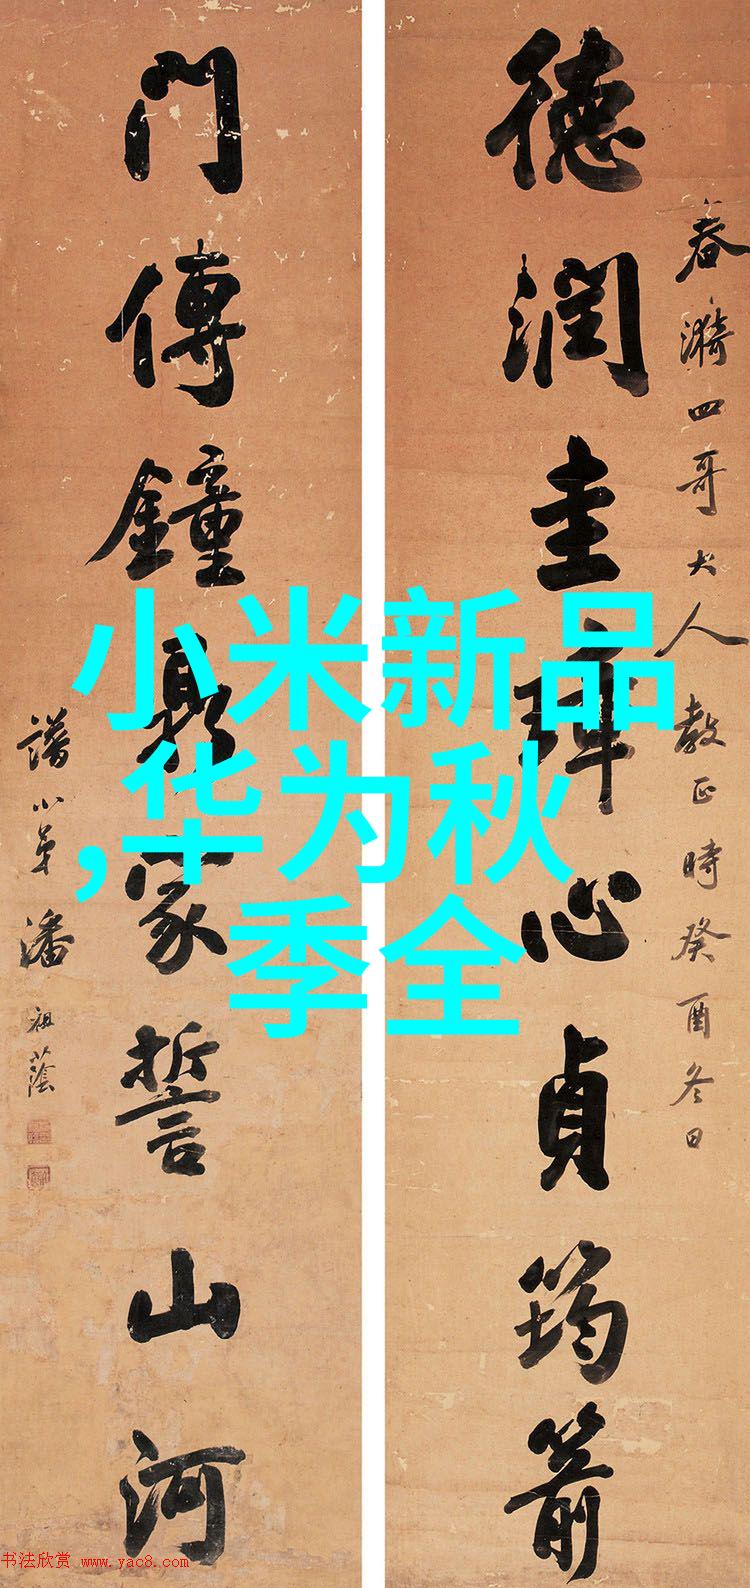 德润圭璋心貞筠箭
春漪四哥大人教正時癸酉冬日
門傳鐘鼎家誓山河
譜小弟潘祖蔭
小米新品
,华为秋
季全
书法欣赏 www.yac8.com